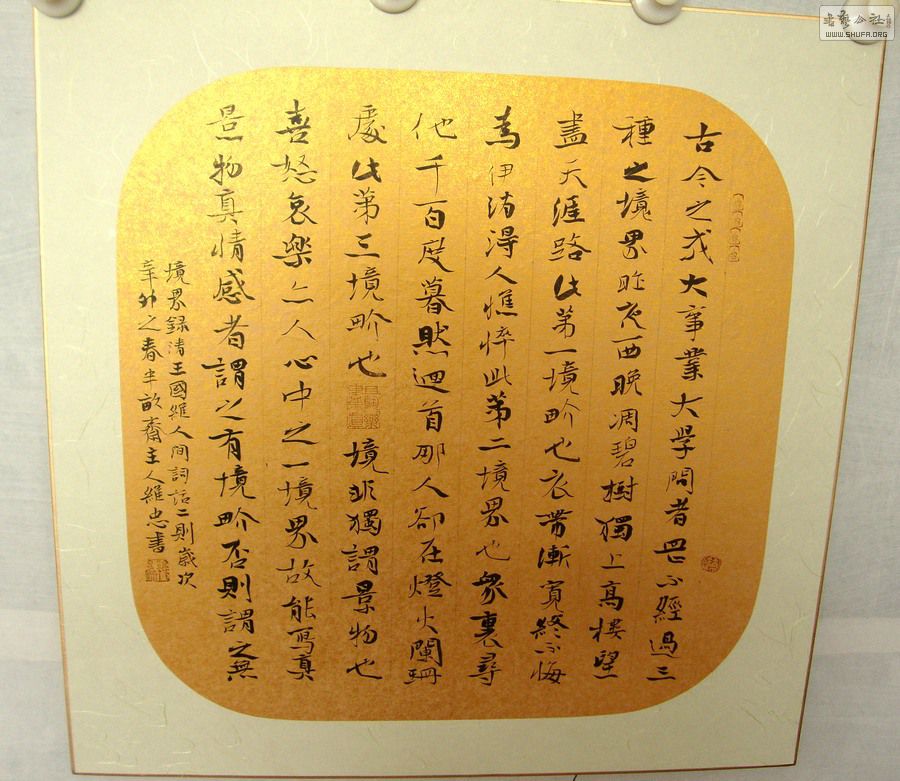 古今之成大事業大學問者罔不經過三
種之境界昨夜西晚凋碧樹獨上高樓望
盡天涯路此第一境畍也衣帶漸寬終不悔
為伊消得人憔悴此第二境界也衆裏尋
他千百度暮然迴首那人卻在燈火闌珊
處此第三境畍也 境非獨謂景物也
喜怒哀樂亦人心中之一境界故能寫真
景物真情感者謂之有境畍否則謂之無
境界錄清王國維人間詞話二則歲次
辛卯之春半畝齋主人維忠書
WWW.SHUFA.ORG